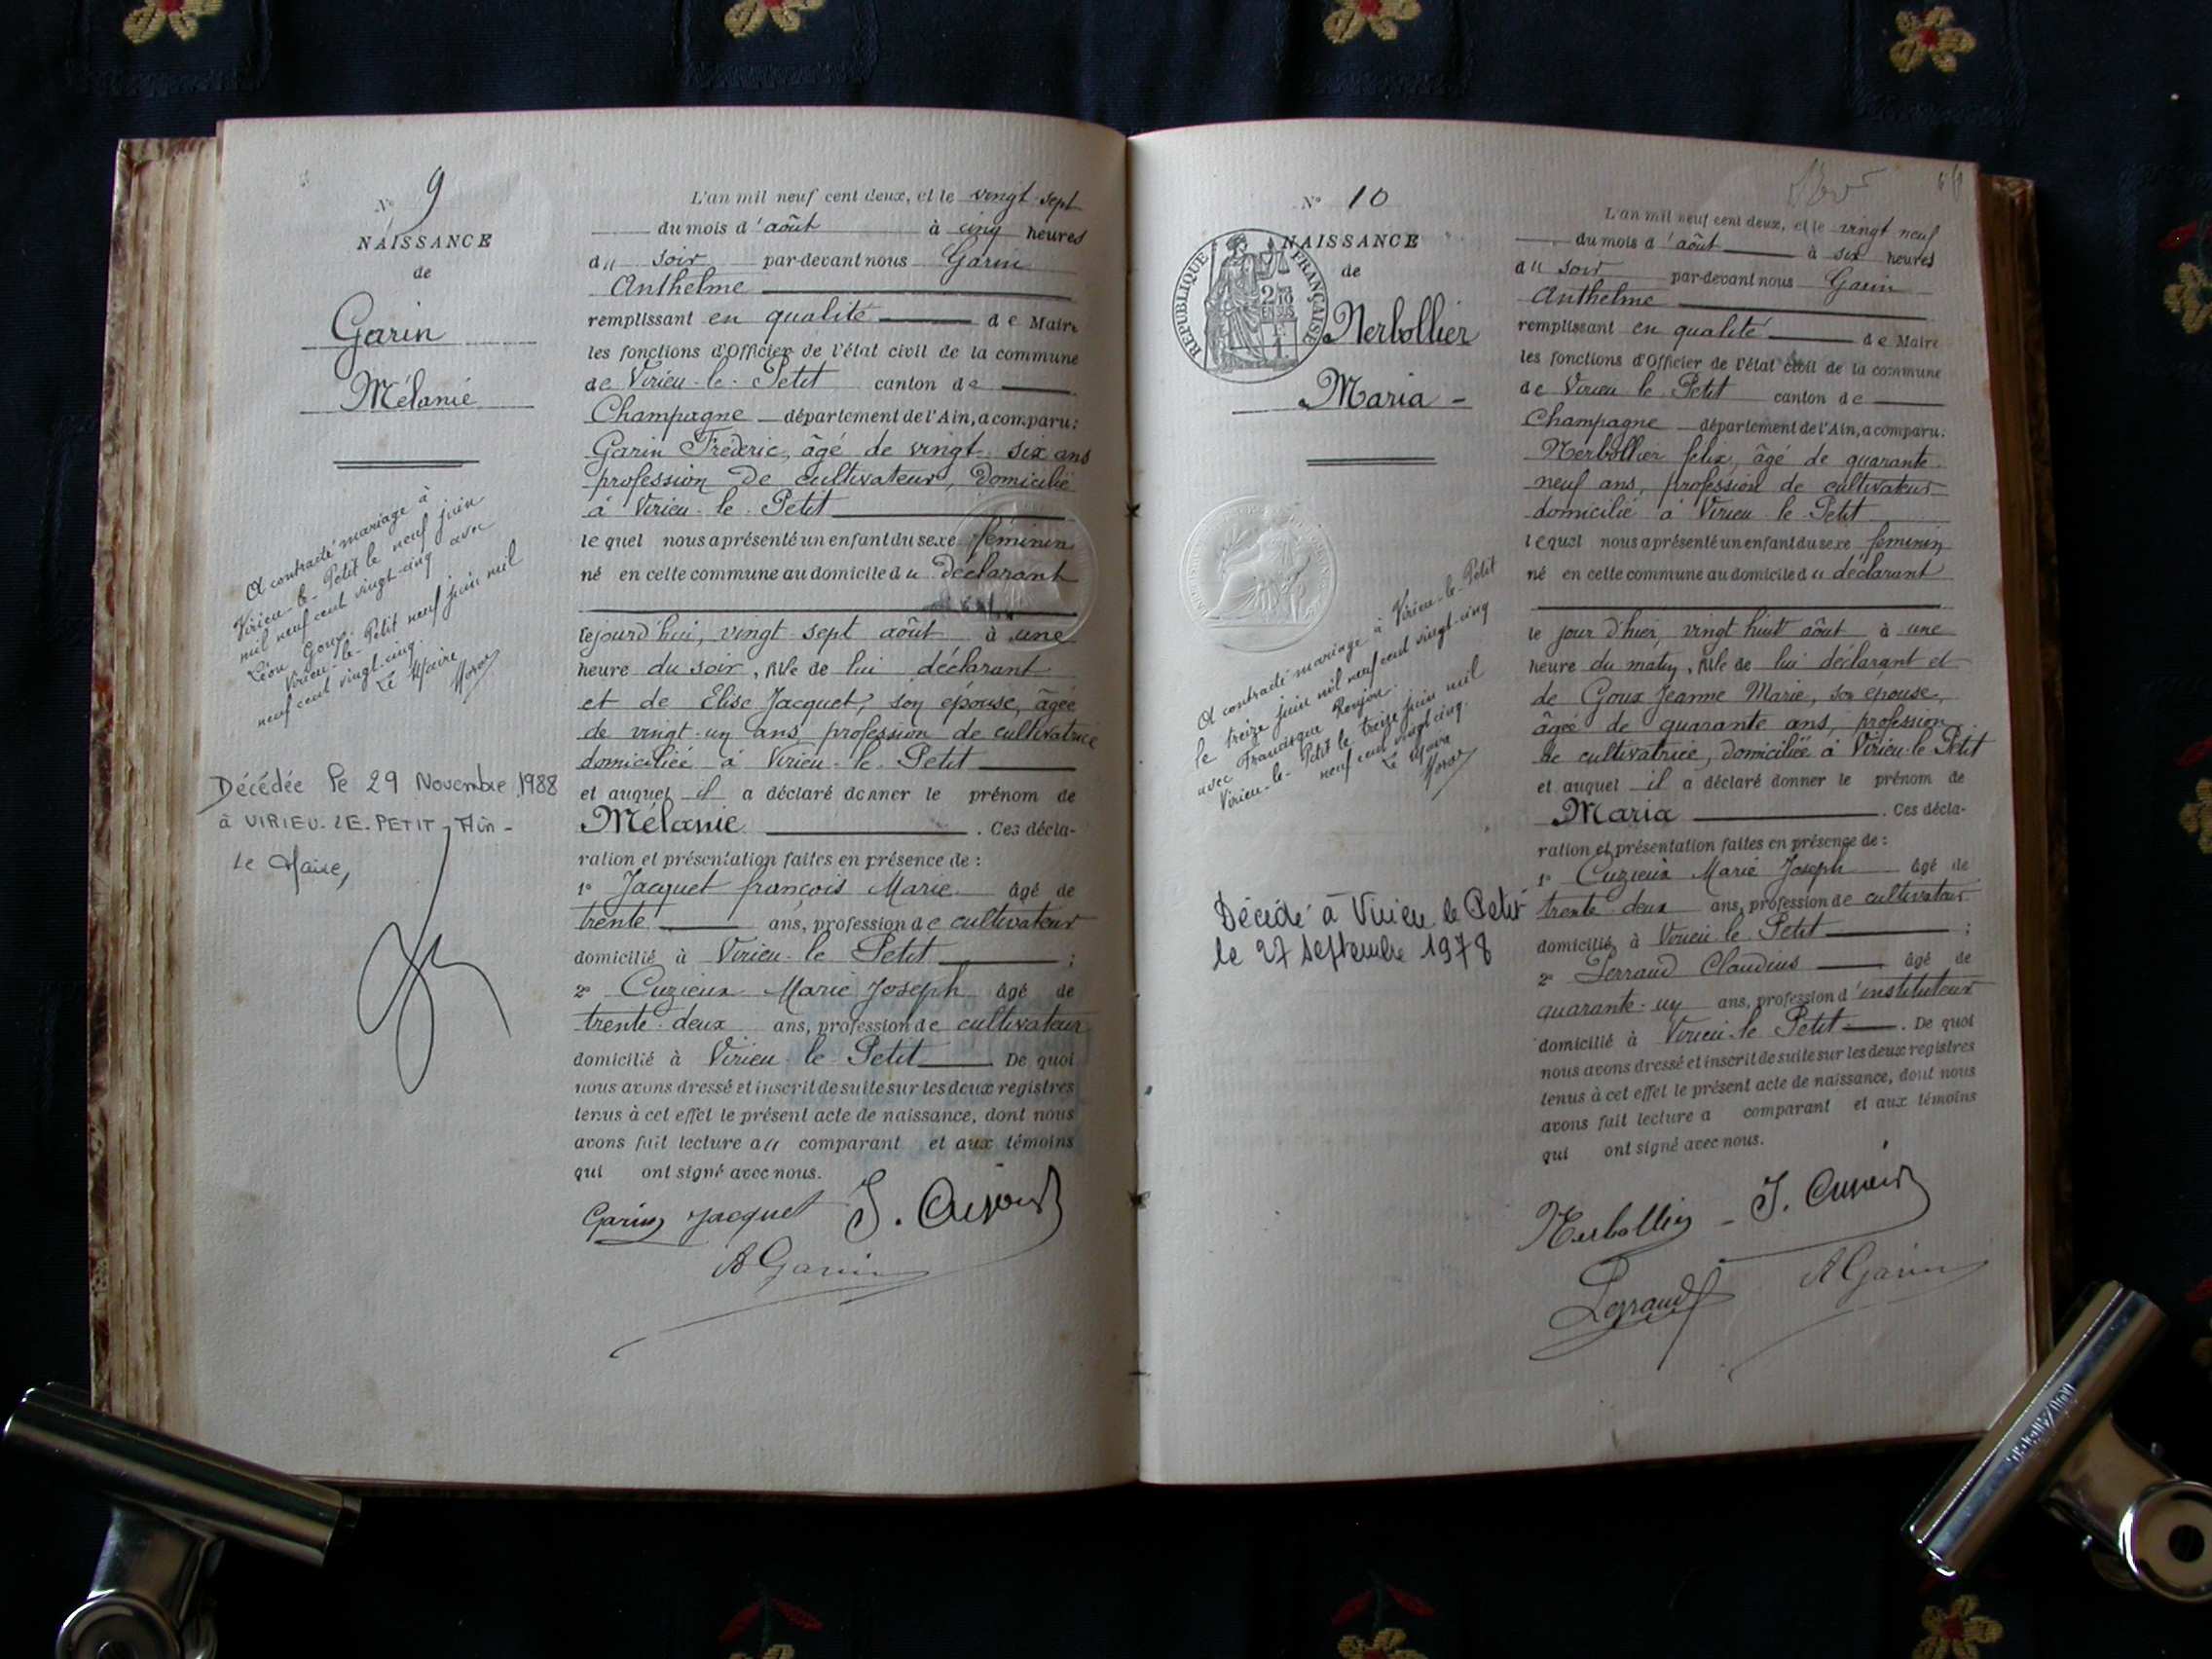 N° 9
NAISSANCE
de
Garin
Mélanie
A contracté mariage à
Virieu-le-Petit le neuf juin
mil neuf cent vingt-cinq avec
Léon Goux.
Virieu-le-Petit neuf juin mil
neuf cent vingt-cinq.
Le Maire
Décédée le 29 Novembre 1988
à VIRIEU-LE-PETIT - Ain -
Le Maire,
L'an mil neuf cent deux, et le vingt-sept
du mois d'août à cinq heures
du soir par-devant nous Garin
Anthelme
remplissant en qualité de Maire
les fonctions d'Officier de l'état civil de la commune
de Virieu-le-Petit canton de
Champagne département de l'Ain, a comparu:
Garin Fréderic, âgé de vingt-six ans
profession de cultivateur, domicilié
à Virieu-le-Petit
lequel nous a présenté un enfant du sexe féminin
né en cette commune au domicile du déclarant
cejourd'hui, vingt-sept août à une
heure du soir, fille de lui déclarant
et de Elise Jacquet, son épouse, âgée
de vingt-un ans profession de cultivatrice
domiciliée à Virieu-le-Petit
et auquel il a déclaré donner le prénom de
Mélanie. Ces décla-
ration et présentation faites en présence de :
1° Jacquet françois Marie âgé de
trente ans, profession de cultivateur
domicilié à Virieu-le Petit ;
2° Cuzieux Marie Joseph âgé de
trente-deux ans, profession de cultivateur
domicilié à Virieu-le Petit. De quoi
nous avons dressé et inscrit de suite sur les deux registres
tenus à cet effet le présent acte de naissance, dont nous
avons fait lecture au comparant et aux témoins
qui ont signé avec nous.
Garin Jacquet J. Cuzieux
A Garin
N° 10
NAISSANCE
de
REPUBLIQUE FRANÇAISE
Nerbollier
Maria -
A contracté mariage à Virieu-le-Petit
le treize juin mil neuf cent vingt-cinq
avec Francisque
Virieu-le-Petit le treize juin mil
neuf cent vingt cinq.
Le Maire
Décédé à Virieu le Petit
le 27 Septembre 1978
L'an mil neuf cent deux, et le vingt neuf
du mois d'août à six heures
du soir par-devant nous Garin
Anthelme
remplissant en qualité de Maire
les fonctions d'Officier de l'état civil de la commune
de Virieu le Petit canton de
Champagne département de l'Ain, a comparu:
Nerbollier félix, âgé de quarante
neuf ans, profession de cultivateur
domicilié à Virieu-le-Petit
lequel nous a présenté un enfant du sexe féminin
né en cette commune au domicile du déclarant
le jour d'hier, vingt huit août à une
heure du matin, fille de lui déclarant et
de Goux Jeanne Marie, son épouse,
âgée de quarante ans, profession
de cultivatrice, domiciliée à Virieu-le Petit
et auquel il a déclaré donner le prénom de
Maria. Ces décla-
ration et présentation faites en présence de :
1° Cuzieux Marie Joseph âgé de
trente-deux ans, profession de cultivateur
domicilié à Virieu-le Petit ;
2° Perraud Claudius âgé de
quarante-un ans, profession d'instituteur
domicilié à Virieu-le Petit. De quoi
nous avons dressé et inscrit de suite sur les deux registres
tenus à cet effet le présent acte de naissance, dont nous
avons fait lecture a comparant et aux témoins
qui ont signé avec nous.
Nerbollier - J. Cuzieux
Perraud A Garin